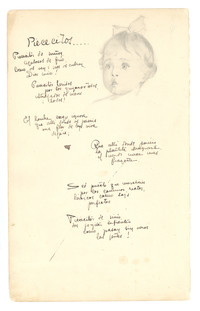 Piececitos.....
Piececitos de niño,
azulosos de frío
¡cómo os ven y no os cubren,
Dios mío!
Piececitos heridos
por los guijarros todos
ultrajados de nieves
y lodos!
El hombre ciego ignora
que
una flor de luz viva
dejáis;
Que allí donde
la plantita
el nardo nace más
fragante.
Sed, puesto que marcháis
por los caminos rectos,
heroicos como sois
perfectos.
Piececitos de niño,
dos joyitas sufrientes
¡cómo pasan sin veros
las gentes!